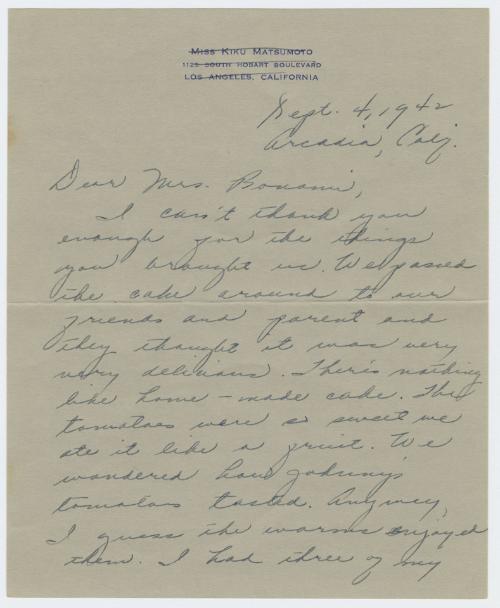 Miss Kiku Matsumoto
1125 South Hobart Boulevard
Los Angeles, California
Sept. 4, 1942
Arcadia, Calif.
Dear Mrs. Bonami,
I can't thank you
enough for the things
you brought us. We passed
the cake around to our
friends and parent and
they thought it was very
very delicious. There's nothing
like home-made cake. The
tomatoes were so sweet we
ate it like a fruit. We
wondered how Johnny's
tomatoes tasted. Anyway,
I guess the worms enjoyed
them. I had three of my